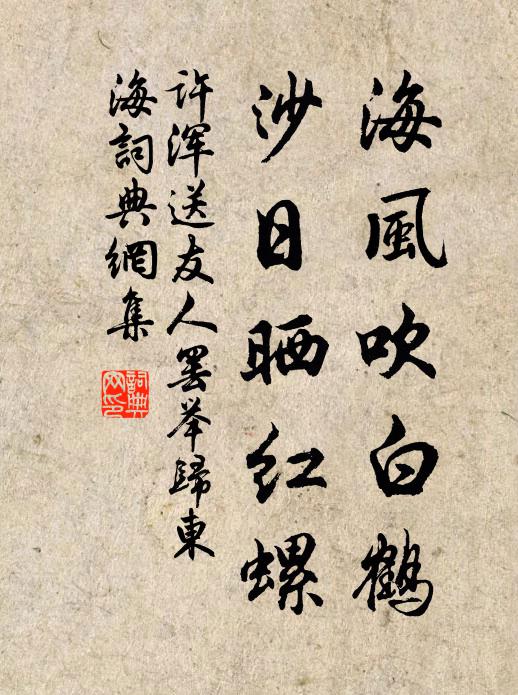 海風吹白鶴
沙日晒紅螺
许渾送友人罢举歸東
海詞典網集
詞典
网印